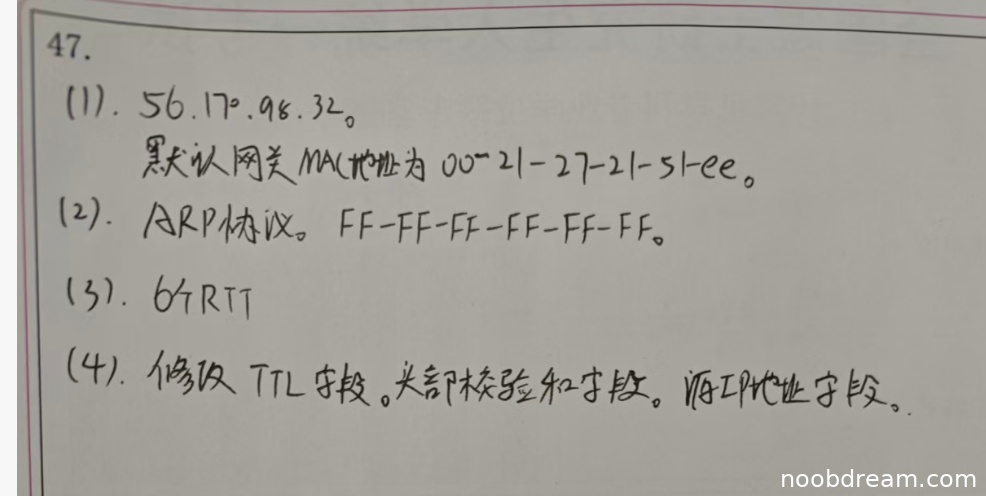 47.
(1). 56.170.98.32。
默认网关MAC地址为 00-21-27-21-51-ee。
(2). ARP协议。FF-FF-FF-FF-FF-FF。
(3). 6个RTT
(4). 修改 TTL字段。头部校验和字段。源IP地址字段。
noobdream.com